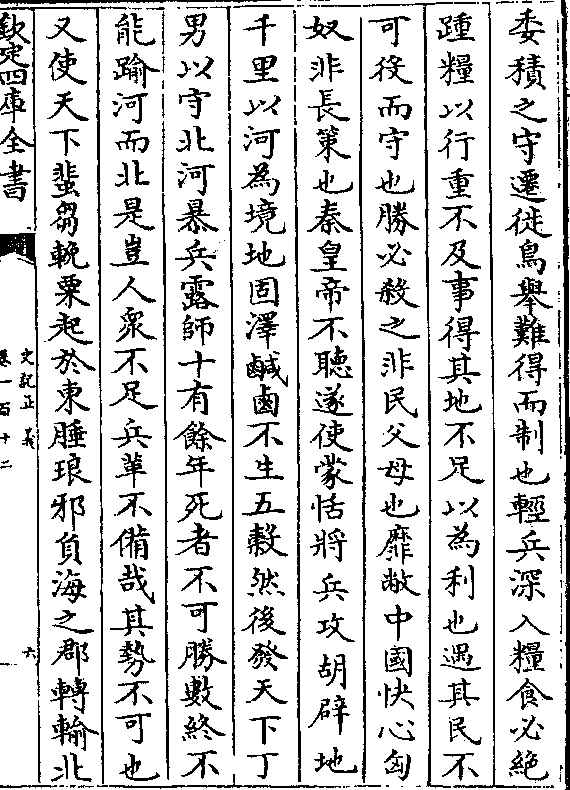 委積之守遷徙鳥舉難得而制也輕兵深入糧食必絶
踵糧以行重不及事得其地不足以為利也遇其民不
可役而守也勝必殺之非民父母也靡敝中國快心匈
奴非長策也秦皇帝不聽遂使蒙恬將兵攻胡辟地
千里以河為境地固澤鹹鹵不生五穀然後發天下丁
男以守北河暴兵露師十有餘年死者不可勝數終不
能踰河而北是豈人衆不足兵革不備哉其勢不可也
又使天下蜚芻輓粟起於東腄琅邪負海之郡轉輸北
欽定四庫全書
史記正義
卷一百十二
六